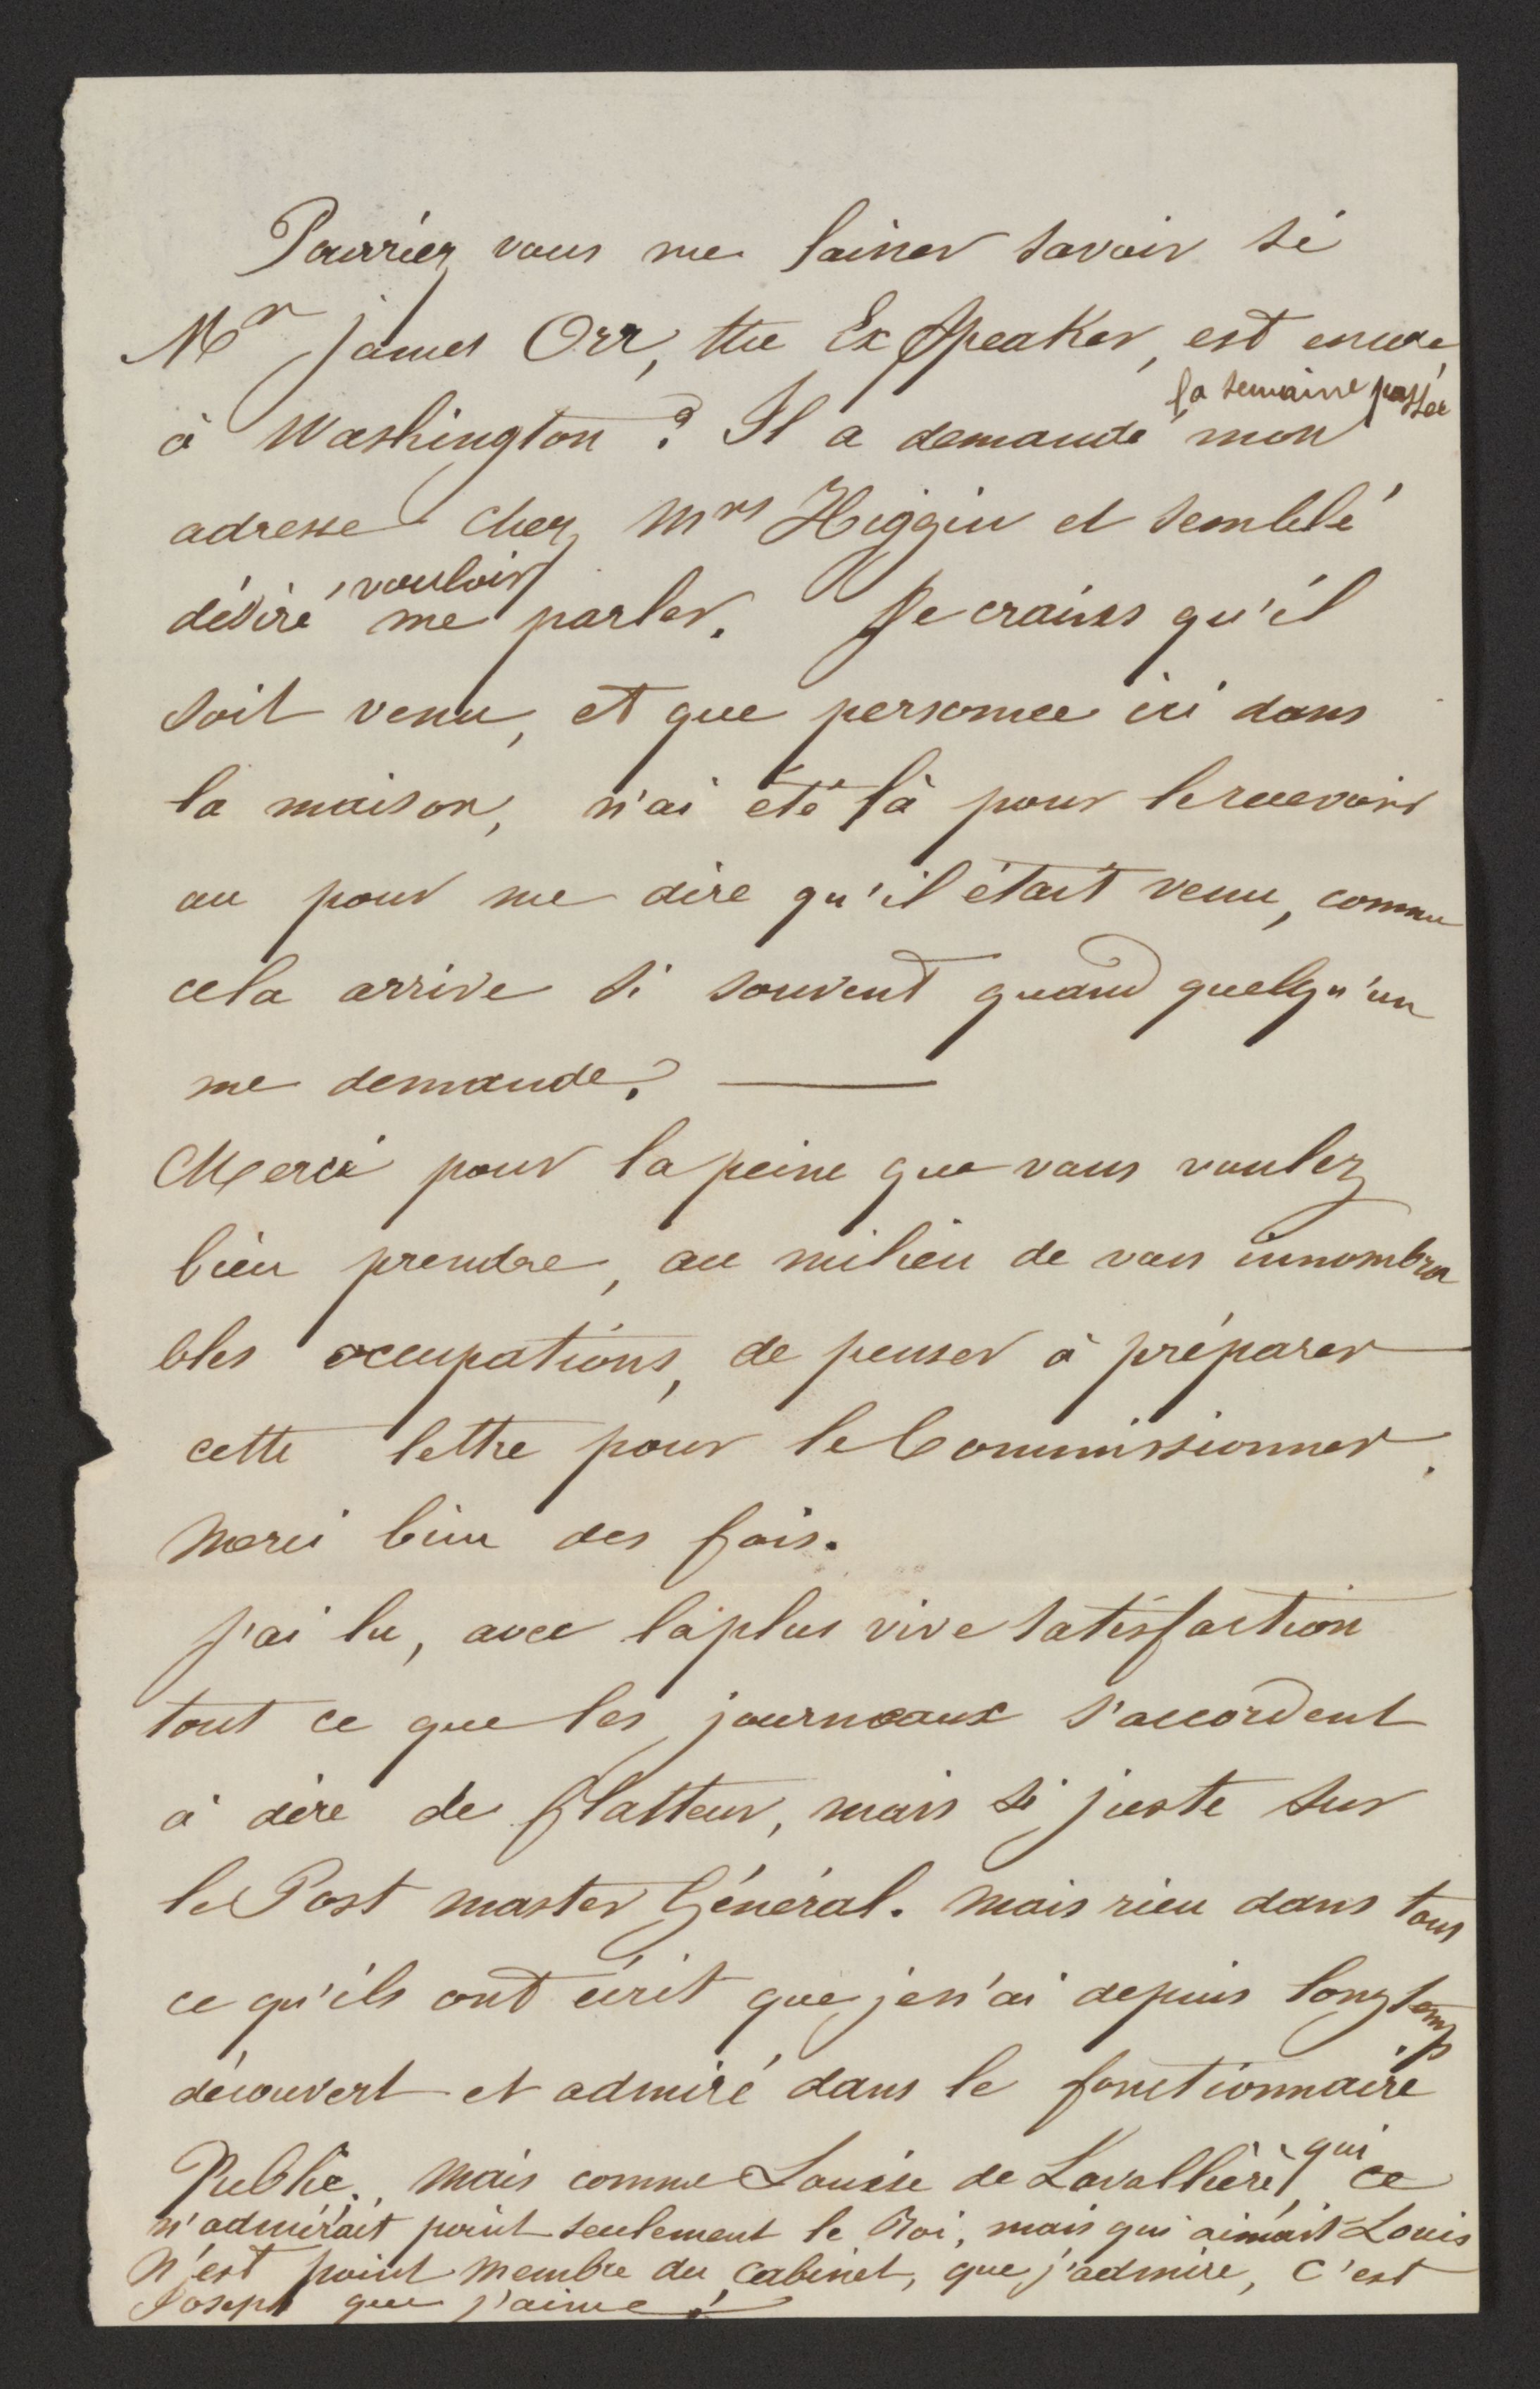 Pourriez vous me laisser savoir si
Mr James Orr, the Ex Speaker, est encore
la semaine passée
à Washington? Il a demandé mon
adresse chez Mrs Higgin et semblé
vouloir
désiré me parler. Je crains qu'il
soit venu, et que personne ici dans
la maison, n'ai été là pour le recevoir
ou pour me dire qu'il était venu, comme
cela arrive si souvent quand quelqu'un
me demande? —
Merci pour la peine que vous voulez
bien prendre, au milieu de vos innombra
bles occupations, de penser à préparer
cette lettre pour le Commissionner.
Merci bien des fois.
J'ai lu, avec la plus vive satisfaction
tout ce que les journeaux s'accordent
à dire de flatteur, mais si juste sur
le Post master Général. Mais rien dans tous
ce qu'ils ont écrit que je n'ai depuis longtemp
découvert et admiré dans le fonctionnaire
Public. Mais comme Louise de Lavallière, qui ce
n'admirait point seulement le Roi, mais qui aimait Louis
N'est point membre du Cabinet, que j'admire, C'est
Joseph que j'aime!